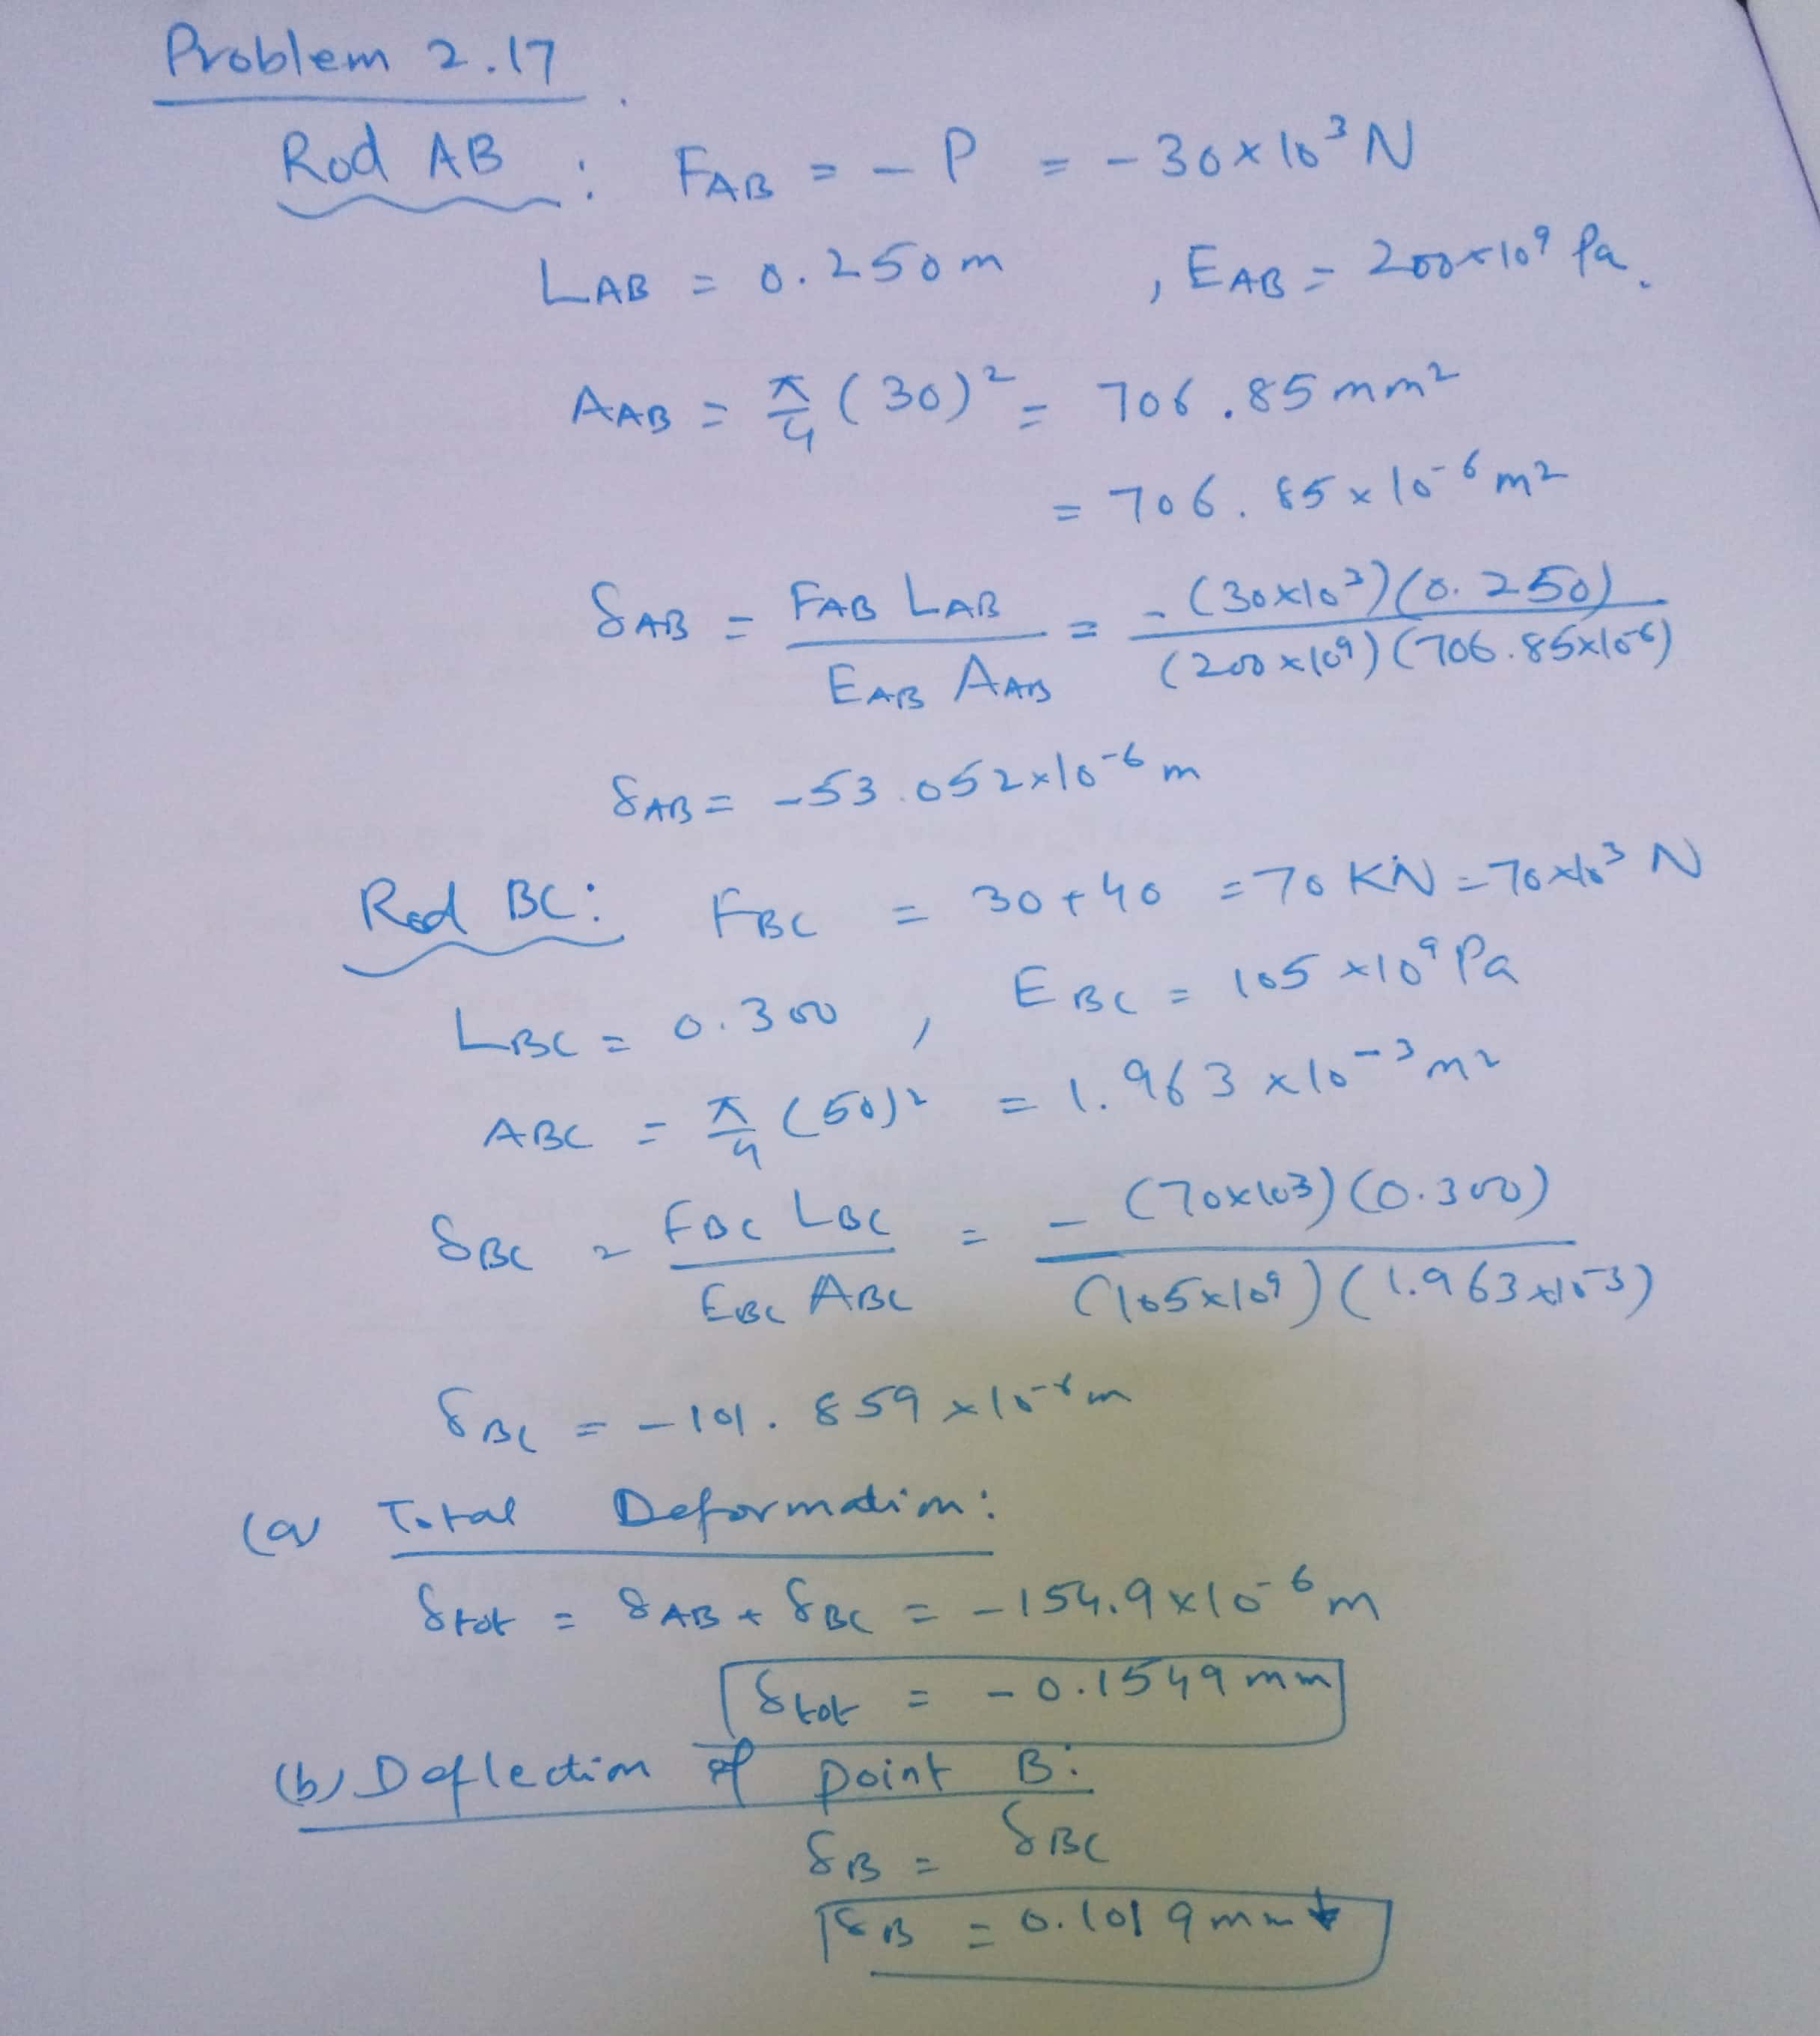 Problem 2.17
Rod AB : FAB = - P = - 30×10³ N
LAB = 0.250 m , EAB = 200×10⁹ Pa.
AAB = π/4 (30)² = 706.85 mm²
= 706.85×10⁻⁶ m²
δAB = FAB LAB / EAB AAB = - (30×10³)(0.250) / (200×10⁹)(706.85×10⁻⁶)
δAB = -53.052×10⁻⁶ m
Rod BC: FBC = 30+40 = 70 KN = 70×10³ N
LBC = 0.300 , EBC = 105×10⁹ Pa
ABC = π/4 (50)² = 1.963×10⁻³ m²
δBC = FBC LBC / EBC ABC = - (70×10³)(0.300) / (105×10⁹)(1.963×10⁻³)
δBC = -101.859×10⁻⁶ m
(a) Total Deformation:
δtot = δAB + δBC = -154.9×10⁻⁶ m
δtot = -0.1549 mm
(b) Deflection of point B:
δB = δBC
δB = 0.1019 mm ↓